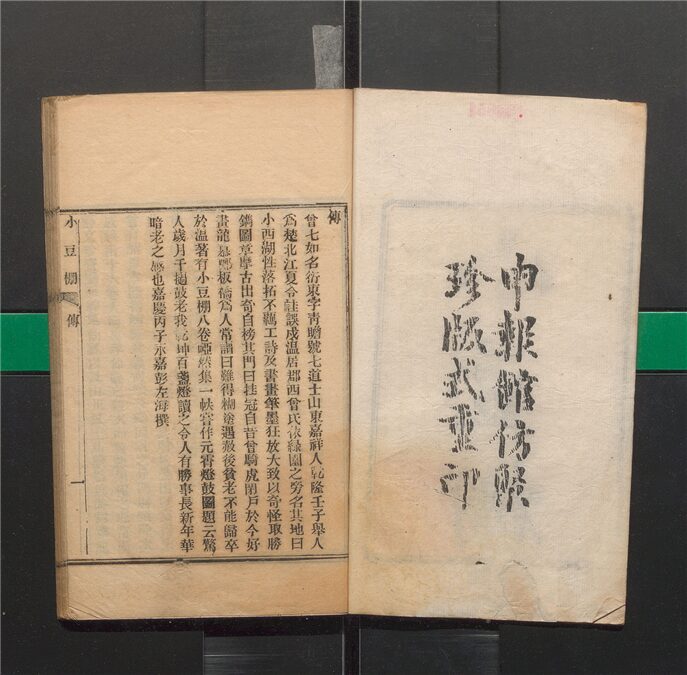 申報館仿聚
珍版式重印
傳
曾七如名衍東字青瞻號七道士山東嘉祥人乾隆壬子舉人
爲楚北江夏令詿誤戍溫居郡西曾氏依綠園之旁名其地曰
小西湖性落拓不羈工詩及書畫筆墨狂放大致以奇怪取勝
鐫圖章摩古出奇自榜其門曰挂冠自昔曾騎虎閉戶於今好
畫龍 板橋爲人常謂曰難得糊塗遇赦後貧老不能歸卒
於溫著有小豆棚八卷啞然集一帙嘗作元宵燈鼓圖題云驚
人歲月千撾鼓老我乾坤百盞燈讀之令人有勝事長新年華
暗老之感也嘉慶丙子永嘉彭左海撰
小豆棚 傳 一